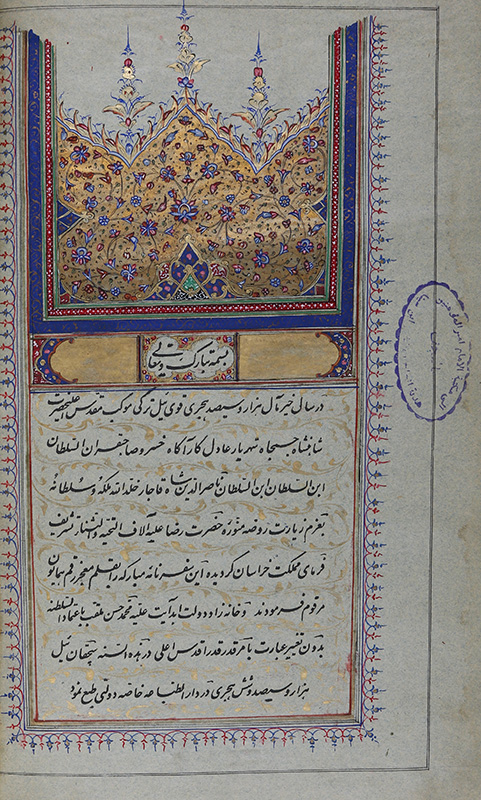 بسمه تبارک و تعالی
در سال خیر مآل هزار و سیصد هجری قوی ئیل ترکی موکب مقدس اعلیحضرت
شاهنشاه جمجاه شهریار عادل کارآگاه خسرو صاحبقران السلطان
ابن السلطان ابن السلطان ناصرالدین شاه قاجار خلد الله ملکه و سلطانه
بعزم زیارت روضه منوّره حضرت رضا علیه آلاف التحیه و الثنا تشریف
فرمای مملکت خراسان گردیده این سفرنامه مبارکه را بقلم معجز رقم همایون
مرقوم فرمودند و خانه زاد دولت ابدآیت علیه محمد حسن ملقب باعتماد السلطنه
بدون تغییر عبارت بامر قدر قدر اقدس اعلی در هذه السنه سیچقان ئیل
هزار و سیصد و شش هجری در دار الطباعه خاصه دولتی طبع نمود